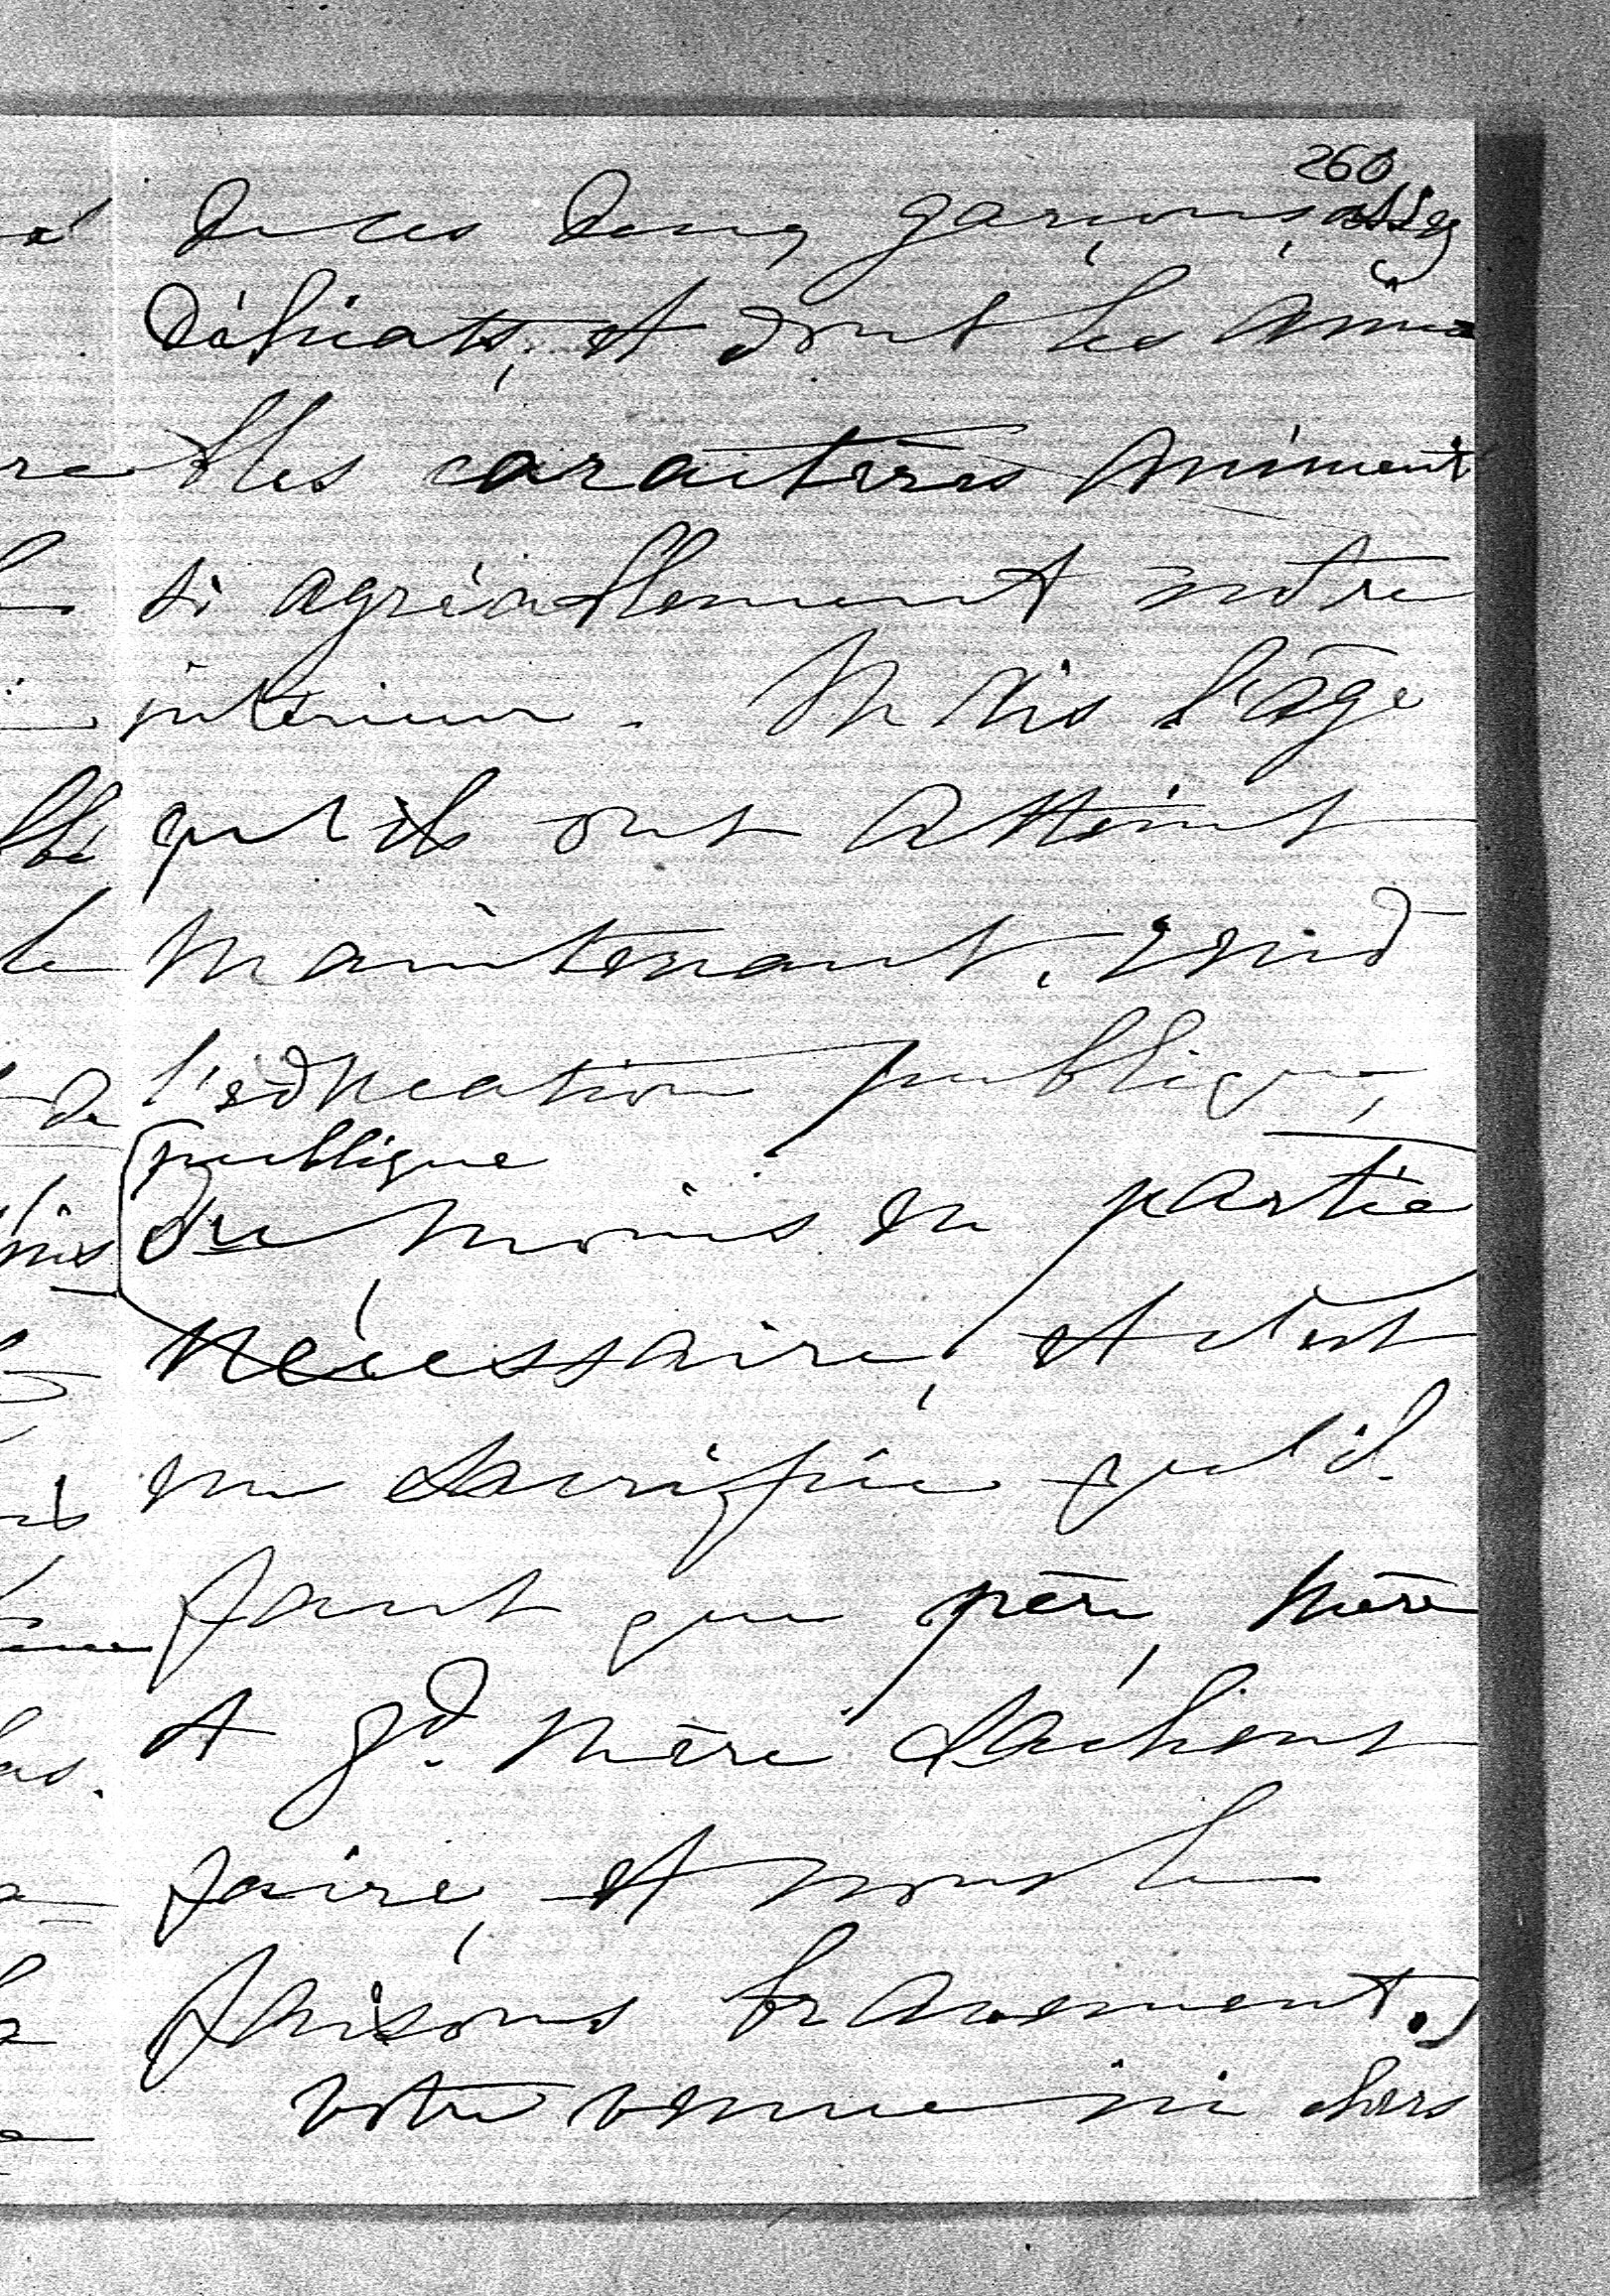 260
de ces deux garçons, assez
délicats, et dont les aima
bles caractères animent
si agréablement notre
intérieur. Mais l'âge
qu'ils ont atteint
maintenant, rend
l'éducation publique,
publique
du moins en partie
nécessaire, et c'est
un sacrifice qu'il
faut que père, mère
et gd. mère sachent
faire, et nous le
faisons bravement.
votre venue ici chers